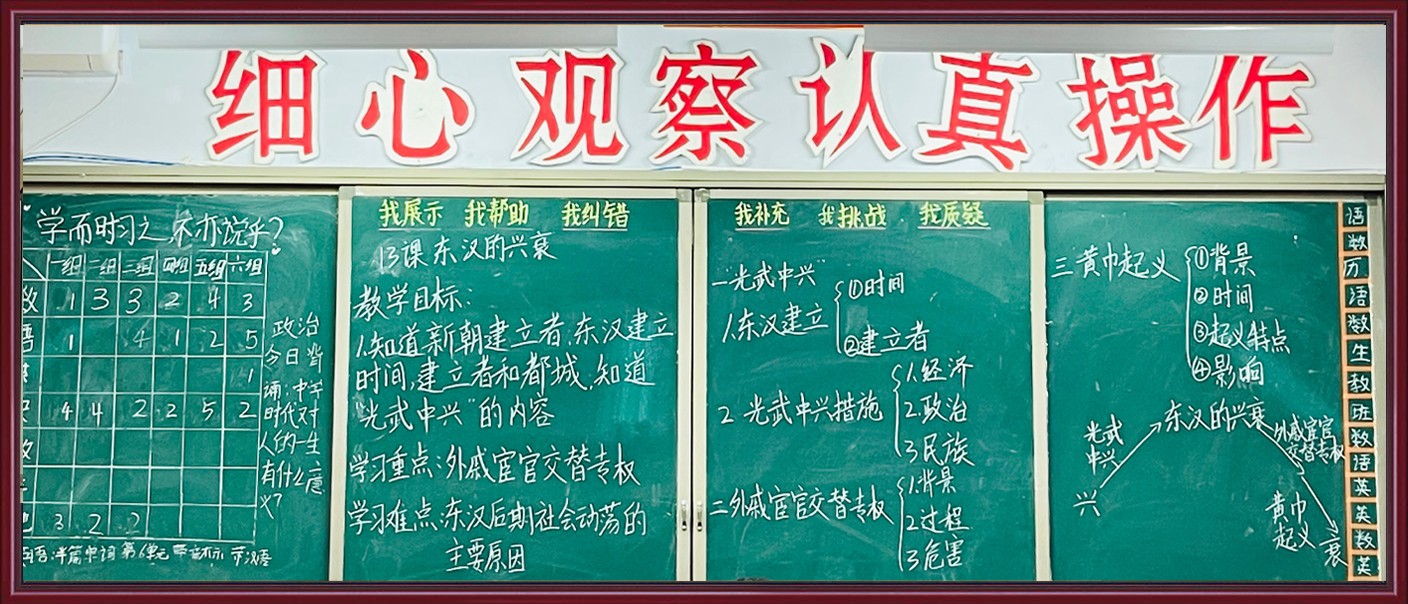 细心观察认真操作
学而时习之 不亦说乎?
一组 二组 三组 四组 五组 六组
数 1 3 3 2 4 3
语 1 4 1 2 5
1
4 4 2 2 5 2
3 2 2
政治
今日背
诵:中学
时代对
人的一生
有什么意
义?
我展示 我帮助 我纠错
13课 东汉的兴衰
教学目标:
1.知道新朝建立者,东汉建立
时间,建立者和都城,知道
“光武中兴”的内容
学习重点:外戚宦官交替专权
学习难点:东汉后期社会动荡的
主要原因
我补充 我挑战 我质疑
一“光武中兴”
1.东汉建立
①时间
②建立者
2.光武中兴措施
1.经济
2.政治
3.民族
二外戚宦官交替专权
1.背景
2.过程
3.危害
三黄巾起义
①背景
②时间
③起义特点
④影响
东汉的兴衰
光武
中兴
兴
外戚宦官
交替专权
黄巾
起义
衰
语
数
历
语
数
生
教
班
数
语
英
英
数
英